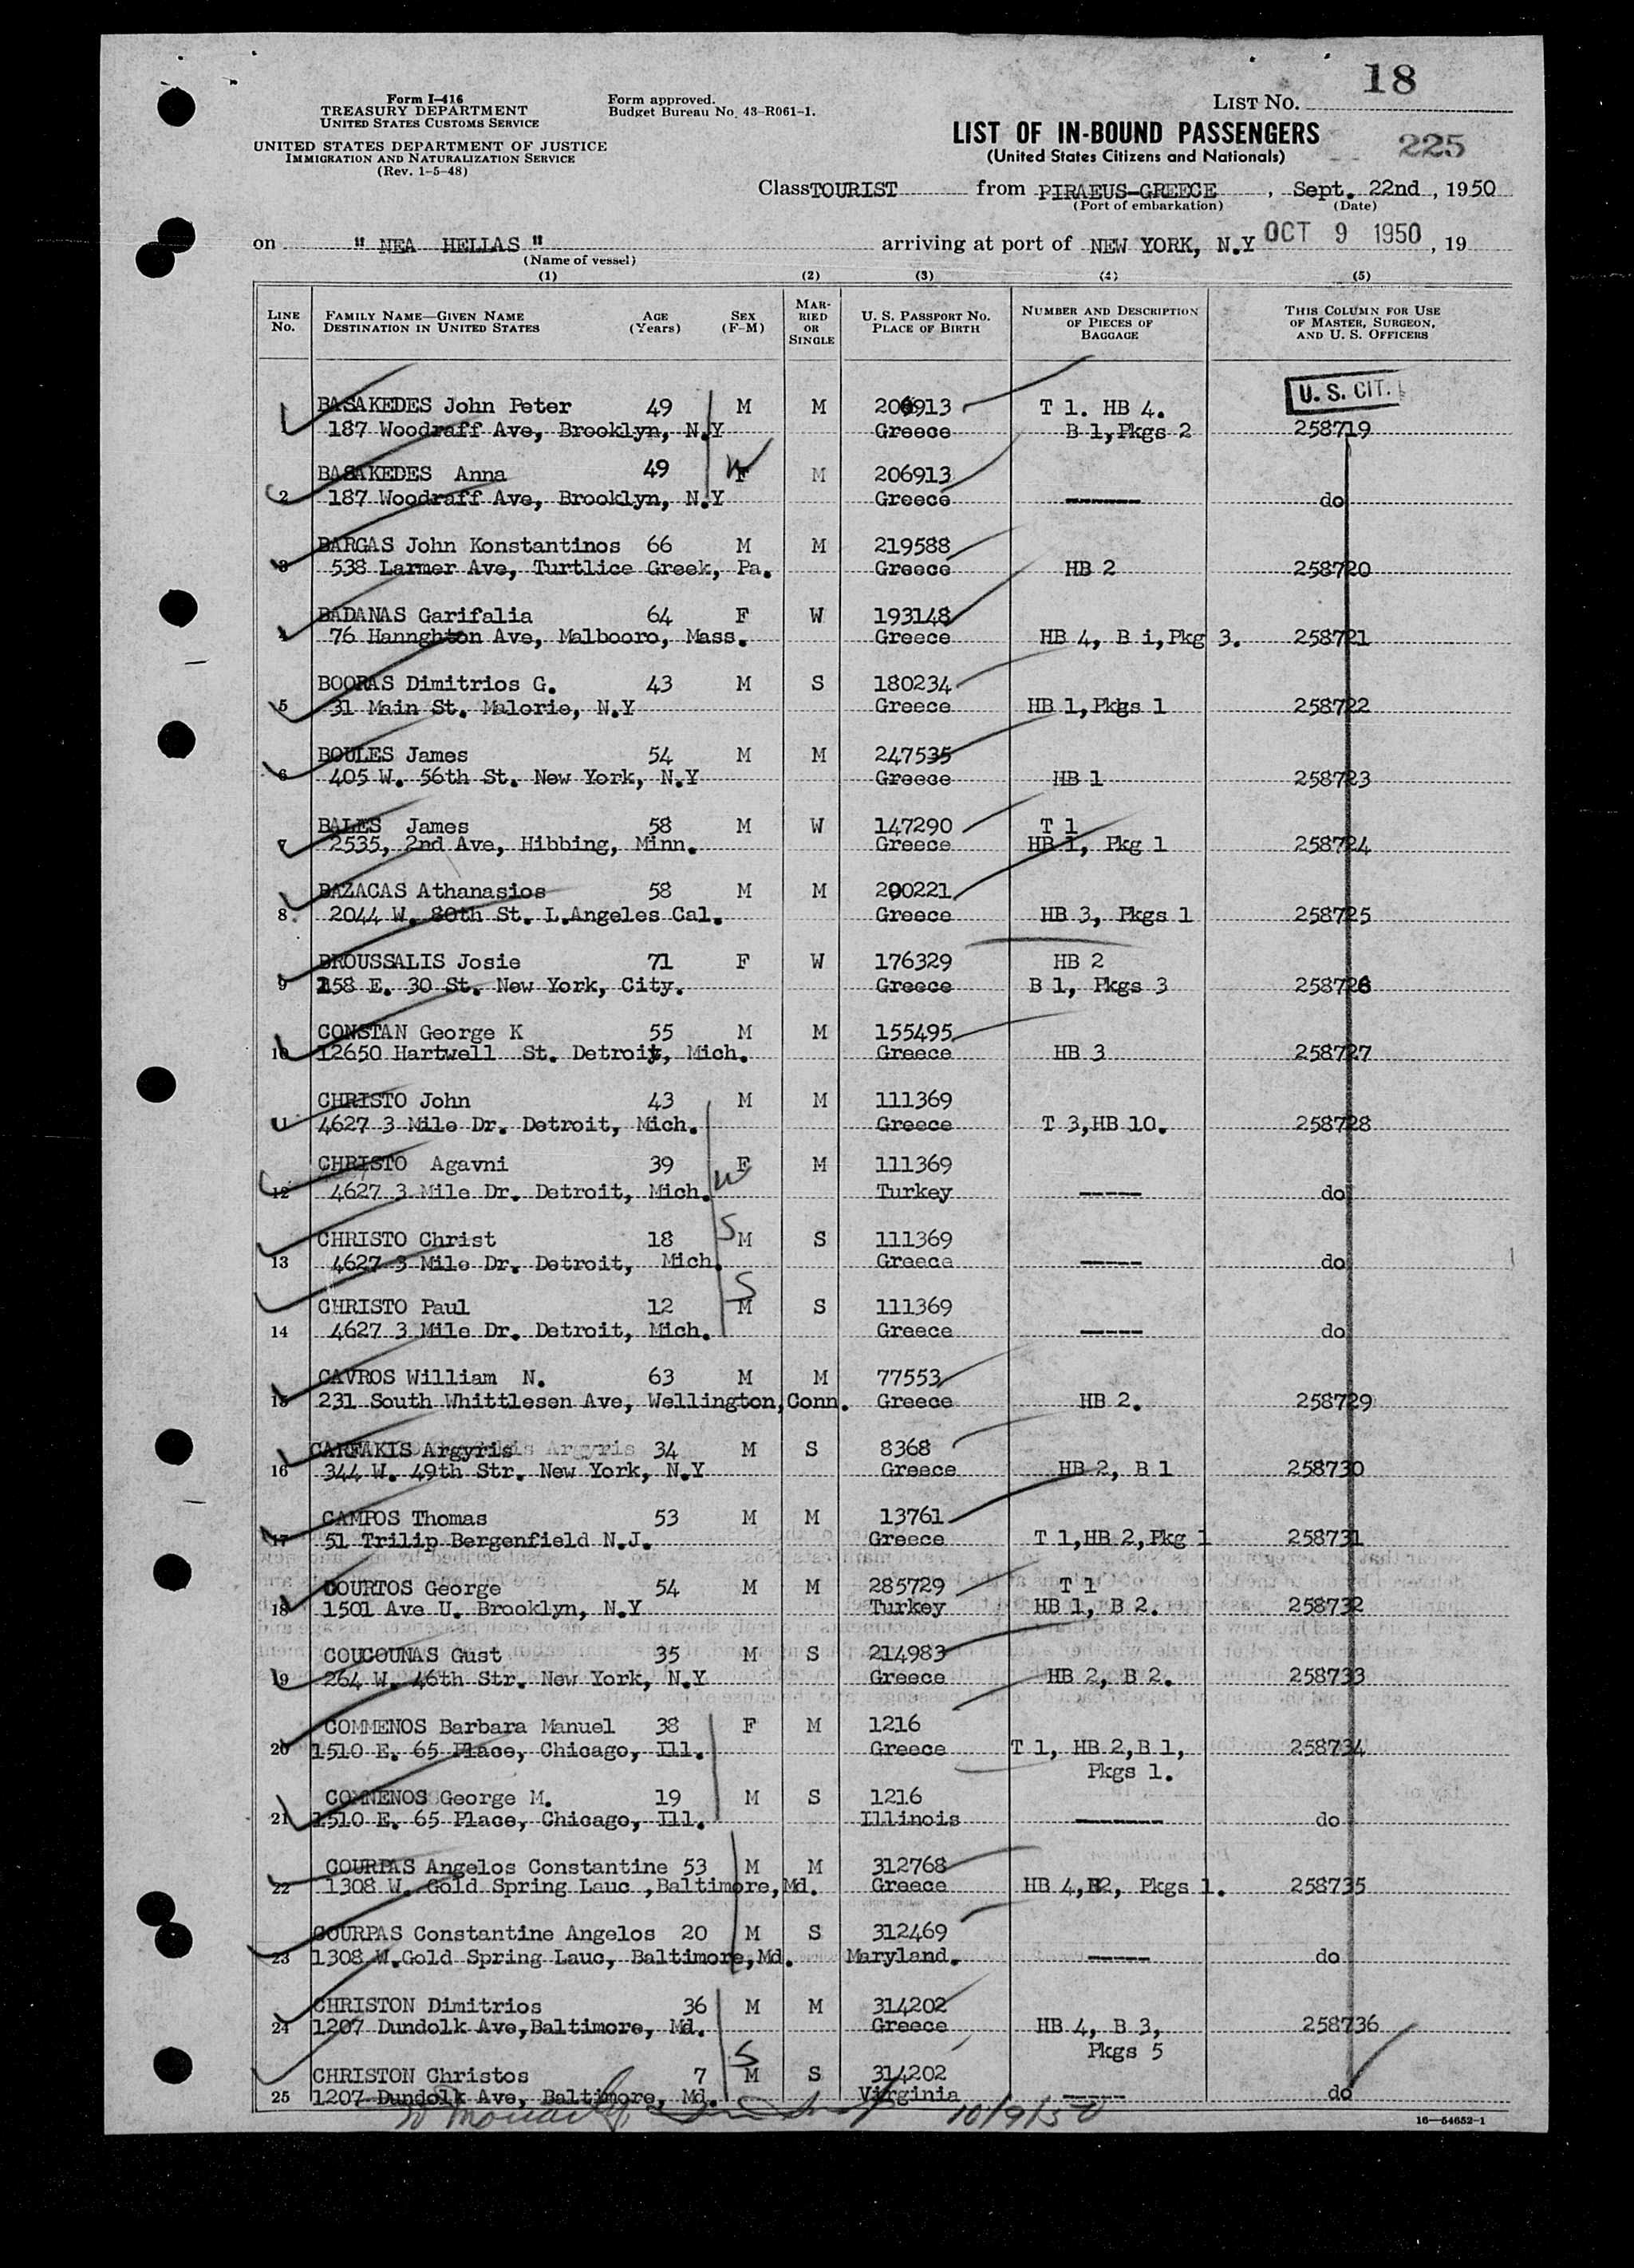 18
Form I-416
TREASURY DEPARTMENT
UNITED STATES CUSTOMS SERVICE
UNITED STATES DEPARTMENT OF JUSTICE
IMMIGRATION AND NATURALIZATION SERVICE
(Rev. 1-5-48)
Form approved.
Budget Bureau No. 43-R061-1.
LIST NO.
LIST OF IN-BOUND PASSENGERS
(United States Citizens and Nationals)
225
Class TOURIST from PIRAEUS-GREECE, Sept. 22nd, 1950
(Port of embarkation) (Date)
on " NEA HELLAS " arriving at port of NEW YORK, N.Y OCT 9 1950, 19
(Name of vessel)
(1) (2) (3) (4) (5)
LINE No. FAMILY NAME—GIVEN NAME DESTINATION IN UNITED STATES AGE (Years) SEX (F-M) MARRIED OR SINGLE U. S. PASSPORT NO. PLACE OF BIRTH NUMBER AND DESCRIPTION OF PIECES OF BAGGAGE THIS COLUMN FOR USE OF MASTER, SURGEON, AND U. S. OFFICERS
U. S. CIT.
BASAKEDES John Peter 49 M M 206913 T 1. HB 4.
187 Woodraff Ave, Brooklyn, N.Y Greece B 1,Pkgs 2 258719
BASAKEDES Anna 49 F M 206913
2 187 Woodraff Ave, Brooklyn, N.Y Greece ------- do
BARGAS John Konstantinos 66 M M 219588
3 538 Larmer Ave, Turtlice Greek, Pa. Greece HB 2 258720
BADANAS Garifalia 64 F W 193148
4 76 Hannghton Ave, Malbooro, Mass. Greece HB 4, B i,Pkg 3. 258721
BOORAS Dimitrios G. 43 M S 180234
5 31 Main St. Malorie, N.Y Greece HB 1,Pkgs 1 258722
BOULES James 54 M M 247535
6 405 W. 56th St. New York, N.Y Greece HB 1 258723
BALES James 58 M W 147290 T 1
7 2535, 2nd Ave, Hibbing, Minn. Greece HB 1, Pkg 1 258724
BAZACAS Athanasios 58 M M 200221
8 2044 W. 80th St. L.Angeles Cal. Greece HB 3, Pkgs 1 258725
BROUSSALIS Josie 71 F W 176329 HB 2
9 158 E. 30 St. New York, City. Greece B 1, Pkgs 3 258726
CONSTAN George K 55 M M 155495
10 12650 Hartwell St. Detroit, Mich. Greece HB 3 258727
CHRISTO John 43 M M 111369
11 4627 3 Mile Dr. Detroit, Mich. Greece T 3,HB 10. 258728
CHRISTO Agavni 39 F M 111369
12 4627 3 Mile Dr. Detroit, Mich. Turkey ----- do
CHRISTO Christ 18 M S 111369
13 4627 3 Mile Dr. Detroit, Mich. Greece ----- do
CHRISTO Paul 12 M S 111369
14 4627 3 Mile Dr. Detroit, Mich. Greece ----- do
CAVROS William N. 63 M M 77553
15 231 South Whittlesen Ave, Wellington,Conn. Greece HB 2. 258729
CARFAKIS Argyris 34 M S 8368
16 344 W. 49th Str. New York, N.Y Greece HB 2, B 1 258730
CAMPOS Thomas 53 M M 13761
17 51 Trilip Bergenfield N.J. Greece T 1,HB 2,Pkg 1 258731
COURTOS George 54 M M 285729 T 1
18 1501 Ave U. Brooklyn, N.Y Turkey HB 1, B 2. 258732
COUCOUNAS Gust 35 M S 214983
19 264 W. 46th Str. New York, N.Y Greece HB 2, B 2. 258733
COMMENOS Barbara Manuel 38 F M 1216
20 1510 E. 65 Place, Chicago, Ill. Greece T 1, HB 2,B 1, 258734
Pkgs 1.
COMNENOS George M. 19 M S 1216
21 1510 E. 65 Place, Chicago, Ill. Illinois ------- do
COURPAS Angelos Constantine 53 M M 312768
22 1308 W. Gold Spring Lauc ,Baltimore,Md. Greece HB 4,B2, Pkgs 1. 258735
COURPAS Constantine Angelos 20 M S 312469
23 1308 W.Gold Spring Lauc, Baltimore,Md. Maryland. ----- do
CHRISTON Dimitrios 36 M M 314202
24 1207 Dundolk Ave,Baltimore, Md. Greece HB 4, B 3, 258736
Pkgs 5
CHRISTON Christos 7 M S 314202
25 1207 Dundolk Ave, Baltimore, Md. Virginia ----- do
10/9/50
16—54652-1